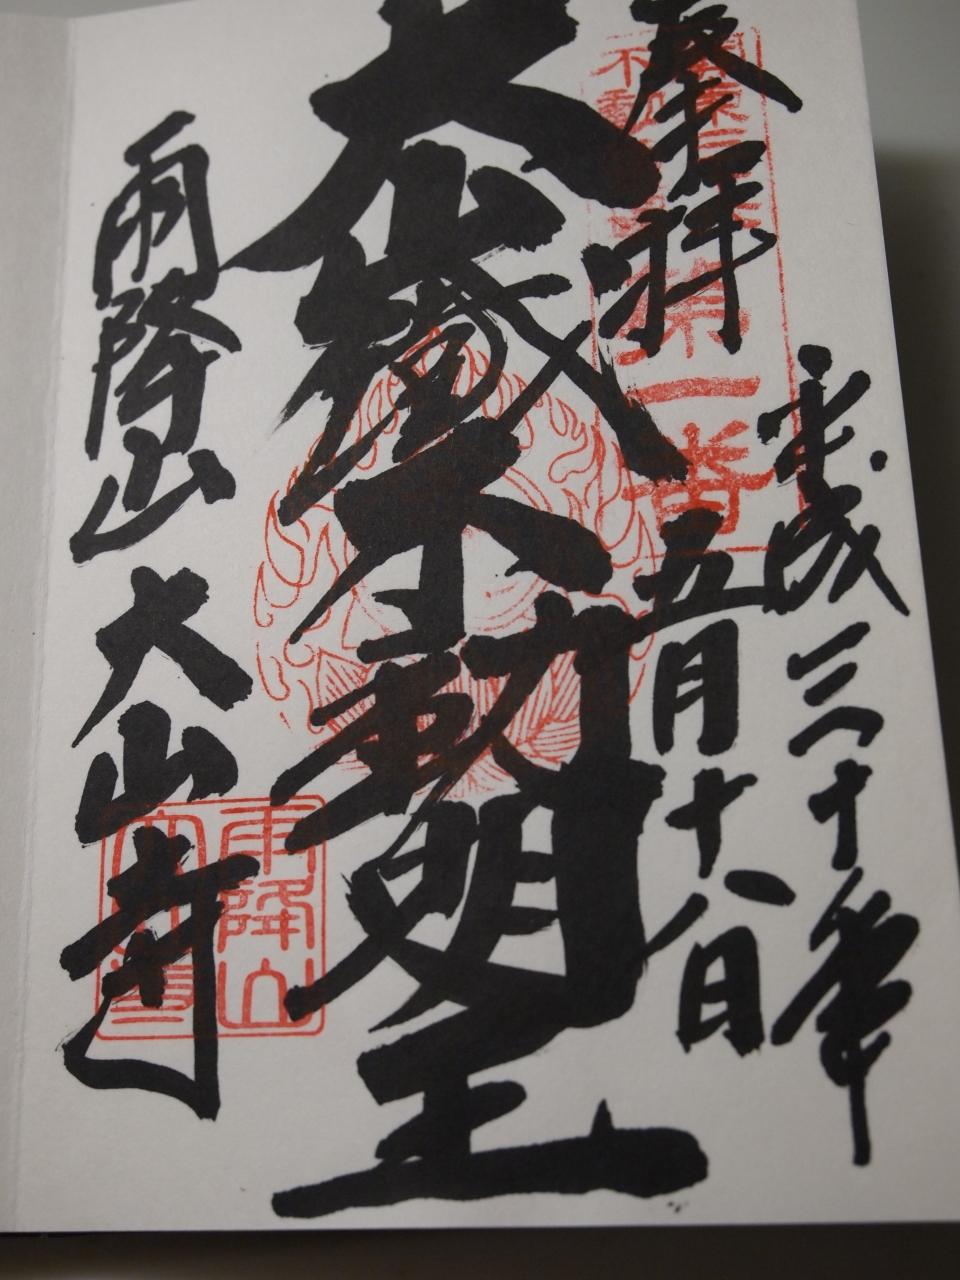 奉拝
平成三十年
五月十八日
大 不動明王
雨降山 大山寺
関東三
不動
第一番
雨降山